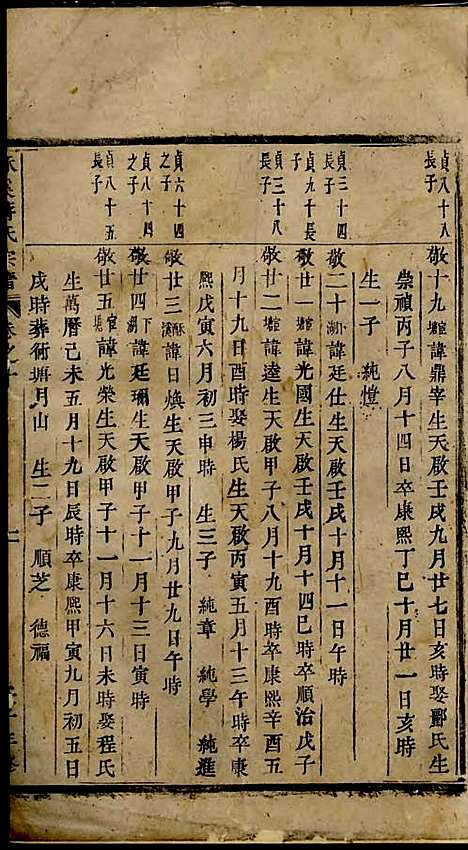 貞八十八長子
敬十九塘諱鼎宰生天啟壬戌九月廿七日亥時娶酈氏生
崇禎丙子八月十四日卒康熙丁巳十月廿一日亥時
生一子 純愷
貞三十四長子
敬二十湖諱廷仕生天啟壬戌十月十一日午時
貞九十長子
敬廿一塘諱光國生天啟壬戌十月十四巳時卒順治戊子
貞三十八長子
敬廿二塘諱逵生天啟甲子八月十九酉時卒康熙辛酉五
月十九日酉時娶楊氏生天啟丙寅五月十三午時卒康
熙戊寅六月初三申時 生三子 純章 純學 純進
貞六十四之子
敬廿三諱日煥生天啟甲子九月廿九日午時
貞八十四之子
敬廿四下湖諱廷珊生天啟甲子十一月十三日寅時
貞八十五長子
敬廿五官塘諱光榮生天啟甲子十一月十六日未時娶程氏
生萬曆己未五月十九日辰時卒康熙甲寅九月初五日
戌時葬術塘月山 生二子 順芝 德福
氏宗譜 卷之十